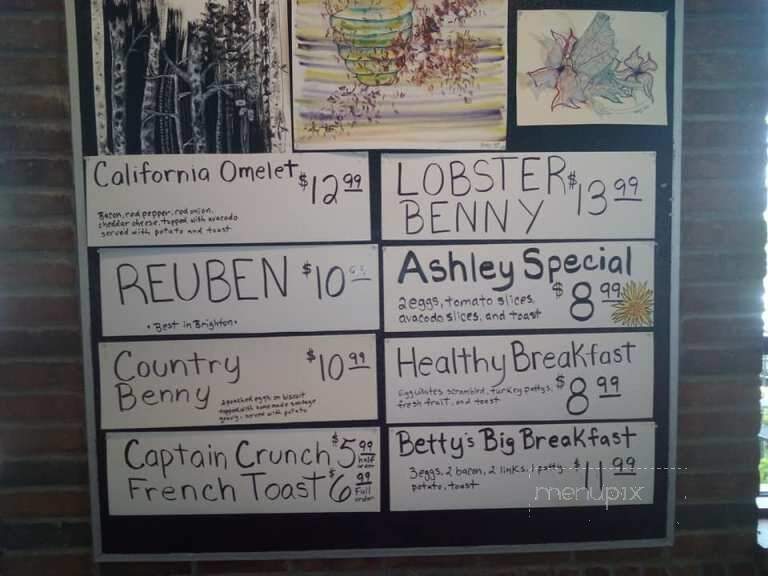 California Omelet $12.99
Bacon, red pepper, red onion,
cheddar cheese, topped with avacado
served with potato and toast
LOBSTER $13.99
BENNY
REUBEN $10
• Best in Brighton •
Ashley Special
2 eggs, tomato slices, $8.99
avacado slices, and toast
Country $10.99
Benny
2 poached eggs on biscuit
topped with home made sausage
gravy, served with potato
Healthy Breakfast
egg whites scrambled, turkey pattys, $8.99
fresh fruit, and toast
Captain Crunch $5.99 half order
French Toast $6.99 Full order
Betty's Big Breakfast
3 eggs, 2 bacon, 2 links, 1 patty $11.99
potato, toast
menupix